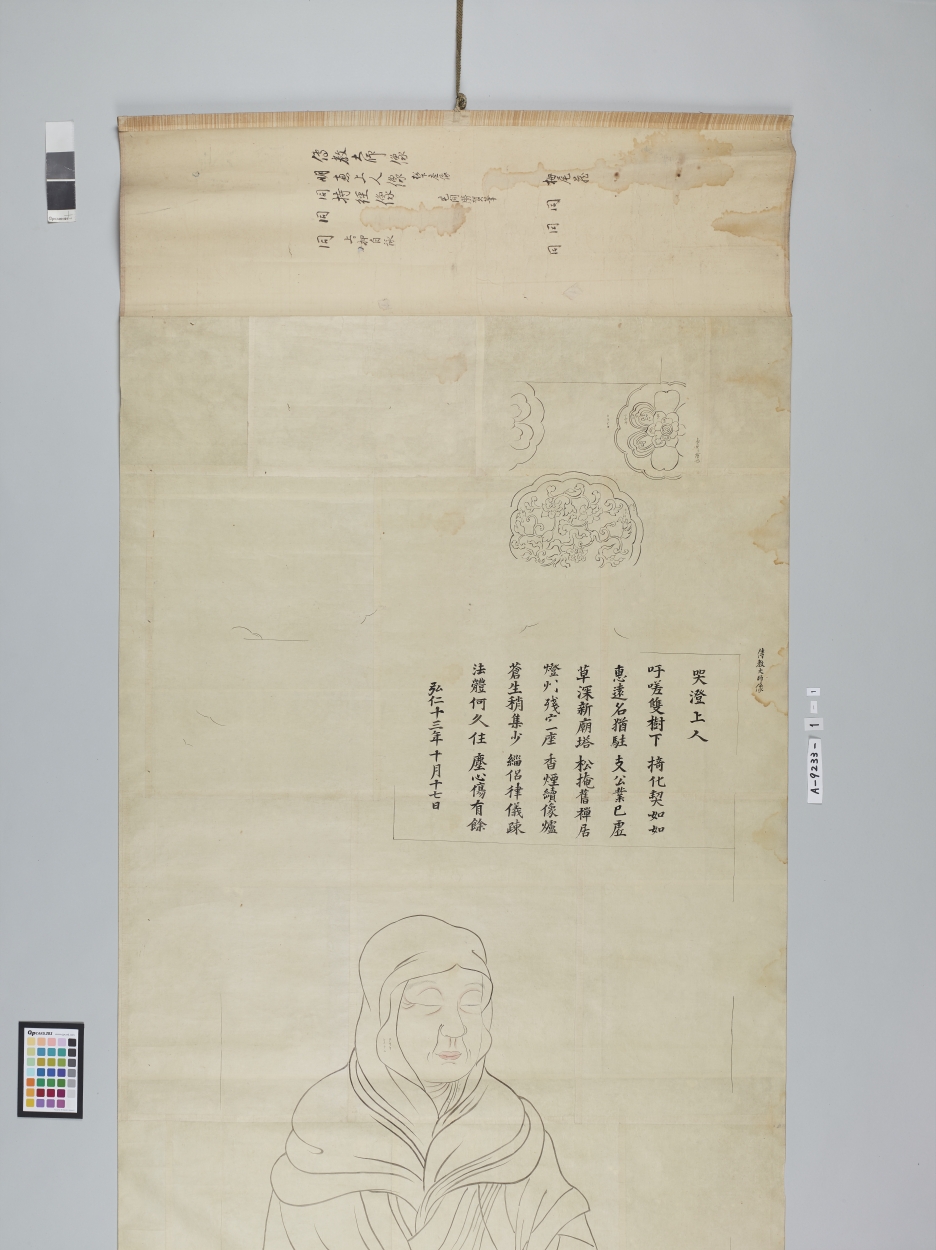 傳教大師像
明恵上人像
同持經像
同
同
栂尾蔵
同
同
傳教大師像
哭澄上人
吁嗟雙樹下 揥化契如如
惠遠名猶駐 支公業已虛
草深新廟塔 松掩舊禪居
燈 殘 座 香煙續像爐
蒼生稍集少 緇侶律儀疎
法體何久住 塵心傷有餘
弘仁十三年十月十七日
A-9233-1
1-1